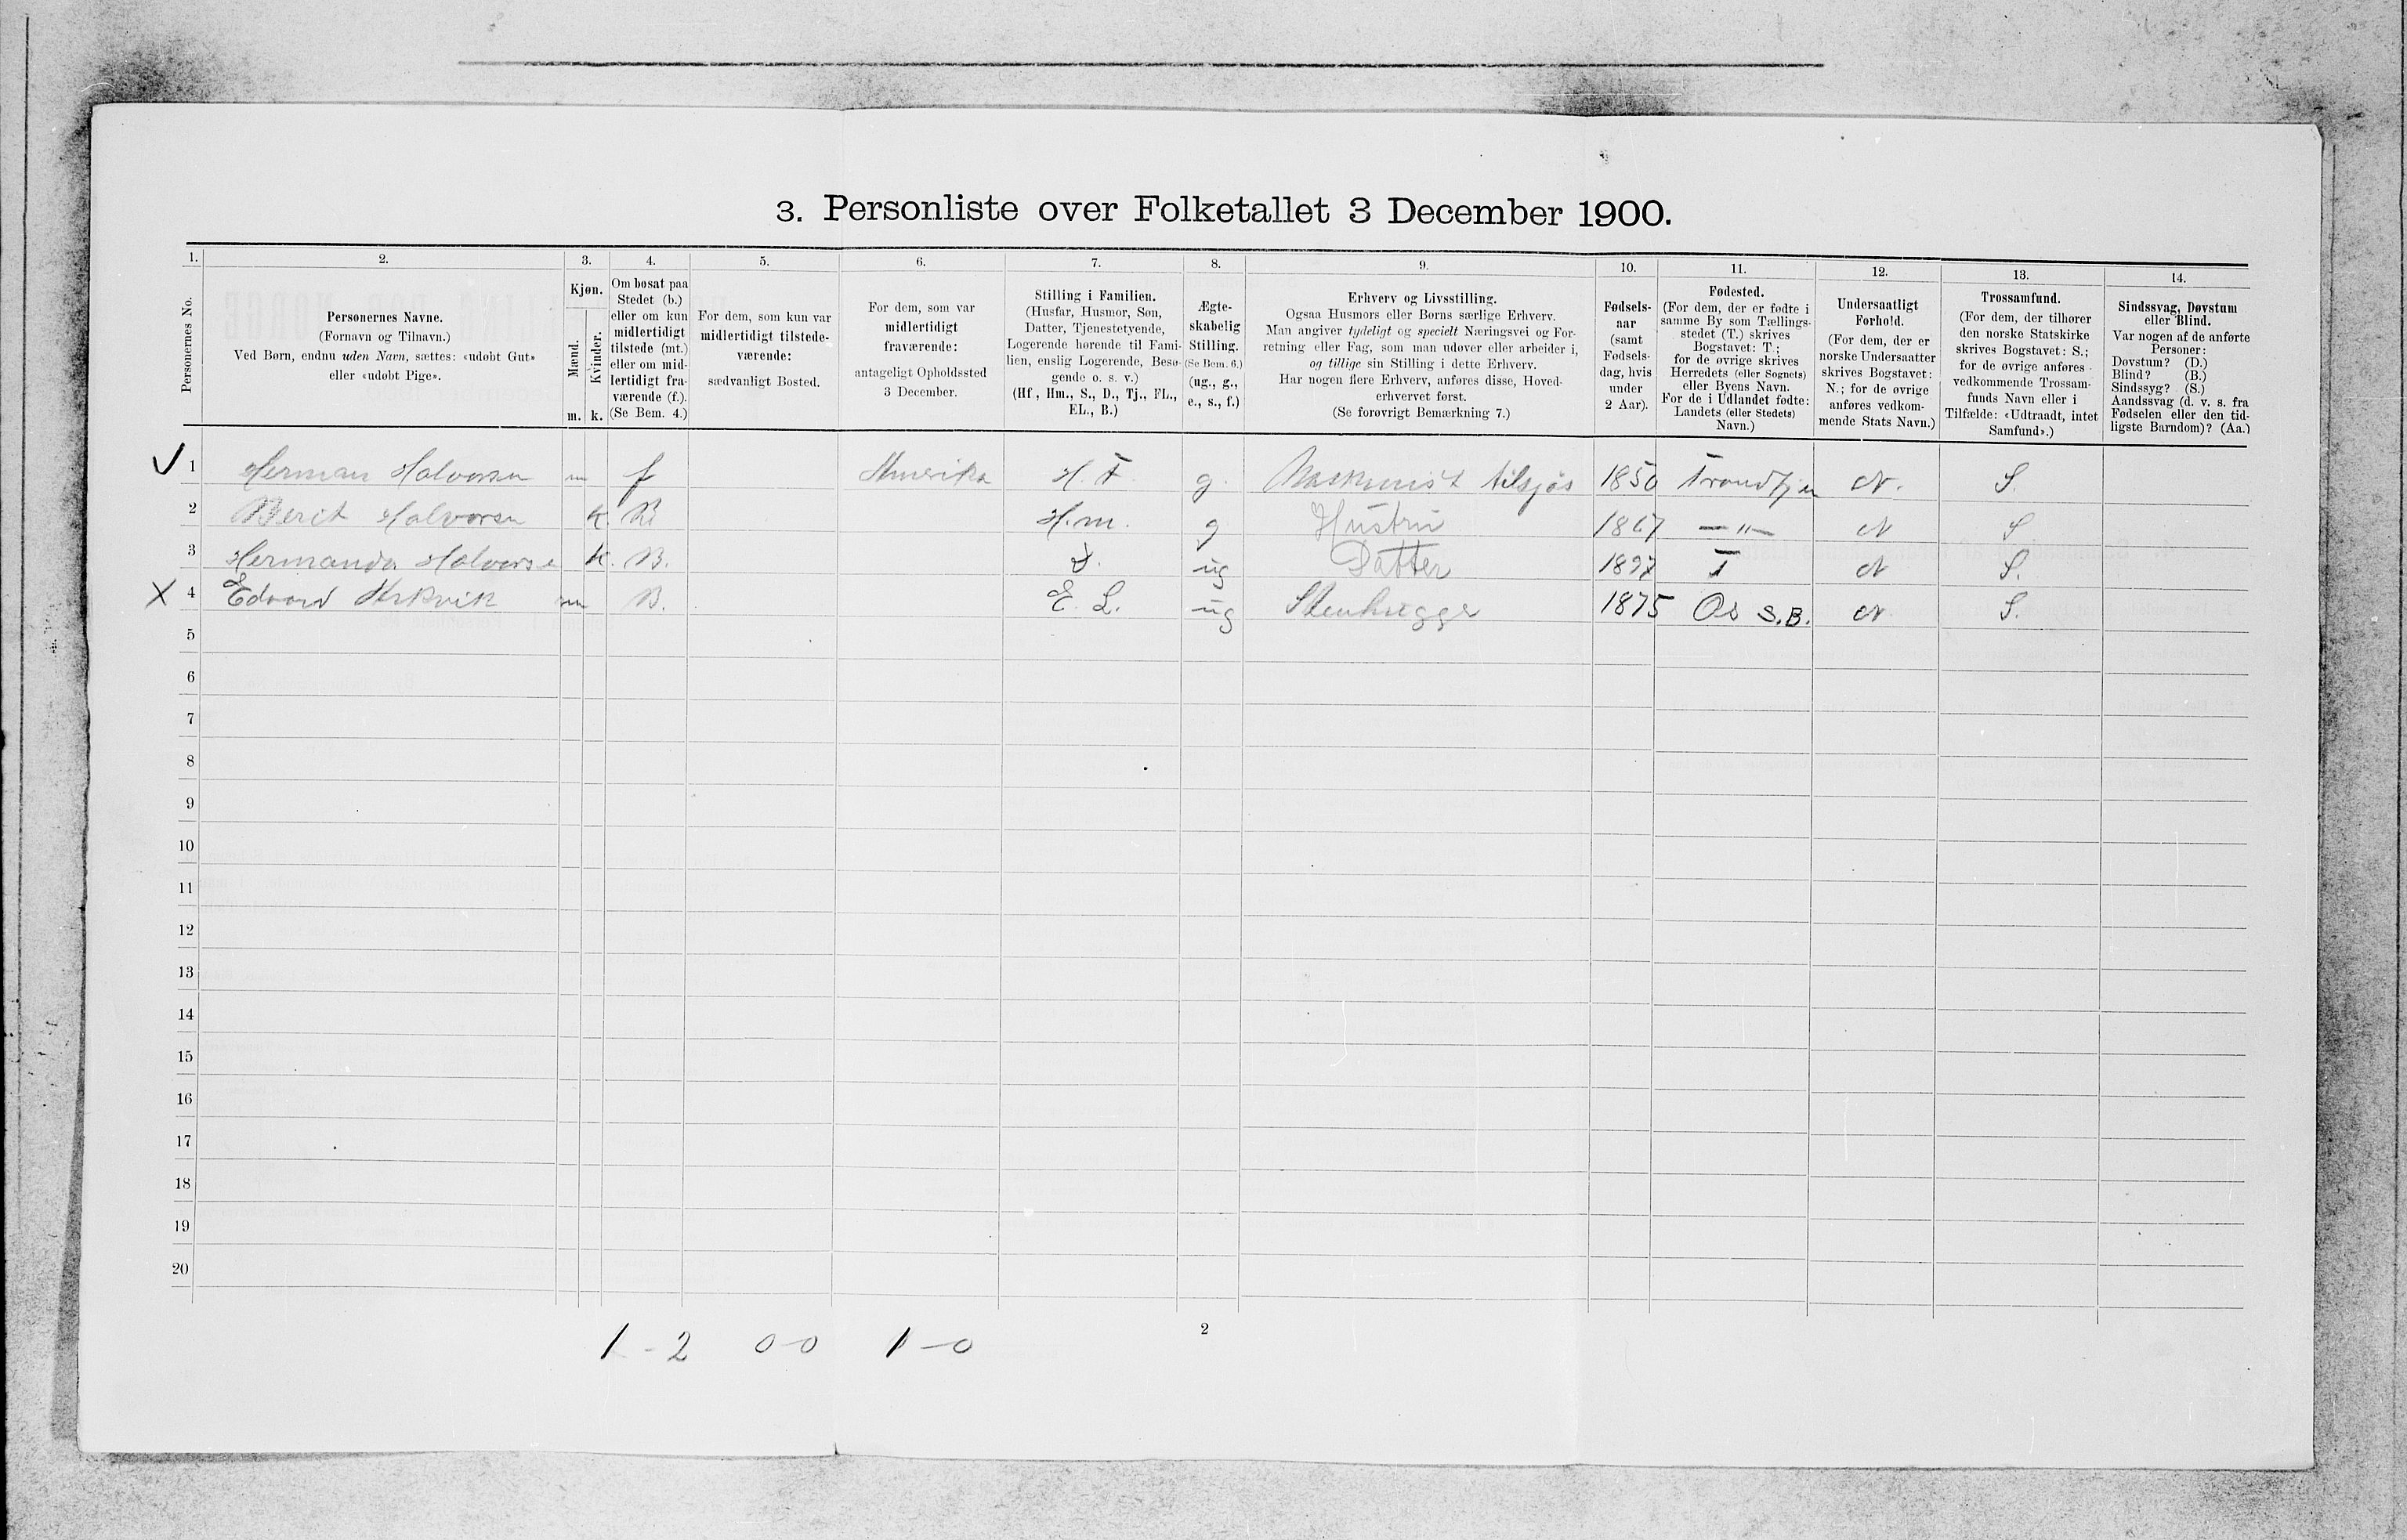 3. Personliste over Folketallet 3 December 1900.
1. 2. 3. 4. 5. 6. 7. 8. 9. 10. 11. 12. 13. 14.
Personernes No.
Personernes Navne.
(Fornavn og Tilnavn.)
Ved Børn, endnu uden Navn, sættes: «udøbt Gut»
eller «udøbt Pige».
Kjøn.
Mænd.
Kvinder.
m. k.
Om bosat paa
Stedet (b.)
eller om kun
midlertidigt
tilstede (mt.)
eller om mid-
lertidigt fra-
værende (f.).
(Se Bem. 4.)
For dem, som kun var
midlertidigt tilstede-
værende:
sædvanligt Bosted.
For dem, som var
midlertidigt
fraværende:
antageligt Opholdssted
3 December.
Stilling i Familien.
(Husfar, Husmor, Søn,
Datter, Tjenestetyende,
Logerende hørende til Fami-
lien, enslig Logerende, Besø-
gende o. s. v.)
(Hf., Hm., S., D., Tj., FL.,
EL., B.)
Ægte-
skabelig
Stilling.
(Se Bem. 6.)
(ug., g.,
e., s., f.)
Erhverv og Livsstilling.
Ogsaa Husmors eller Børns særlige Erhverv.
Man angiver tydeligt og specielt Næringsvei og For-
retning eller Fag, som man udøver eller arbeider i,
og tillige sin Stilling i dette Erhverv.
Har nogen flere Erhverv, anføres disse, Hoved-
erhvervet først.
(Se forøvrigt Bemærkning 7.)
Fødsels-
aar
(samt
Fødsels-
dag, hvis
under
2 Aar).
Fødested.
(For dem, der er fødte i
samme By som Tællings-
stedet (T.) skrives
Bogstavet: T.;
for de øvrige skrives
Herredets (eller Sognets)
eller Byens Navn.
For de i Udlandet fødte:
Landets (eller Stedets)
Navn.)
Undersaatligt
Forhold.
(For dem, der er
norske Undersaatter
skrives Bogstavet:
N.; for de øvrige
anføres vedkom-
mende Stats Navn.)
Trossamfund.
(For dem, der tilhører
den norske Statskirke
skrives Bogstavet: S.;
for de øvrige anføres
vedkommende Trossam-
funds Navn eller i
Tilfælde: «Udtraadt, intet
Samfund».)
Sindssvag, Døvstum
eller Blind.
Var nogen af de anførte
Personer:
Døvstum? (D.)
Blind? (B.)
Sindssyg? (S.)
Aandssvag (d. v. s. fra
Fødselen eller den tid-
ligste Barndom)? (Aa.)
1 Herman Halvorsen m f Amerika H. F. g. Maskinist tilsjøs 1850 Trondhjem N. S.
2 Berit Halvorsen k. B. H.m. g Hustru 1867 —"— N S
3 Hermanda Halvorse k. B. D. ug Datter 1897 T N S.
X 4 Edvard m B. E. L. ug Stenhugger 1875 Os S.B. N S.
5
6
7
8
9
10
11
12
13
14
15
16
17
18
19
20
1 - 2 0-0 1-0
2